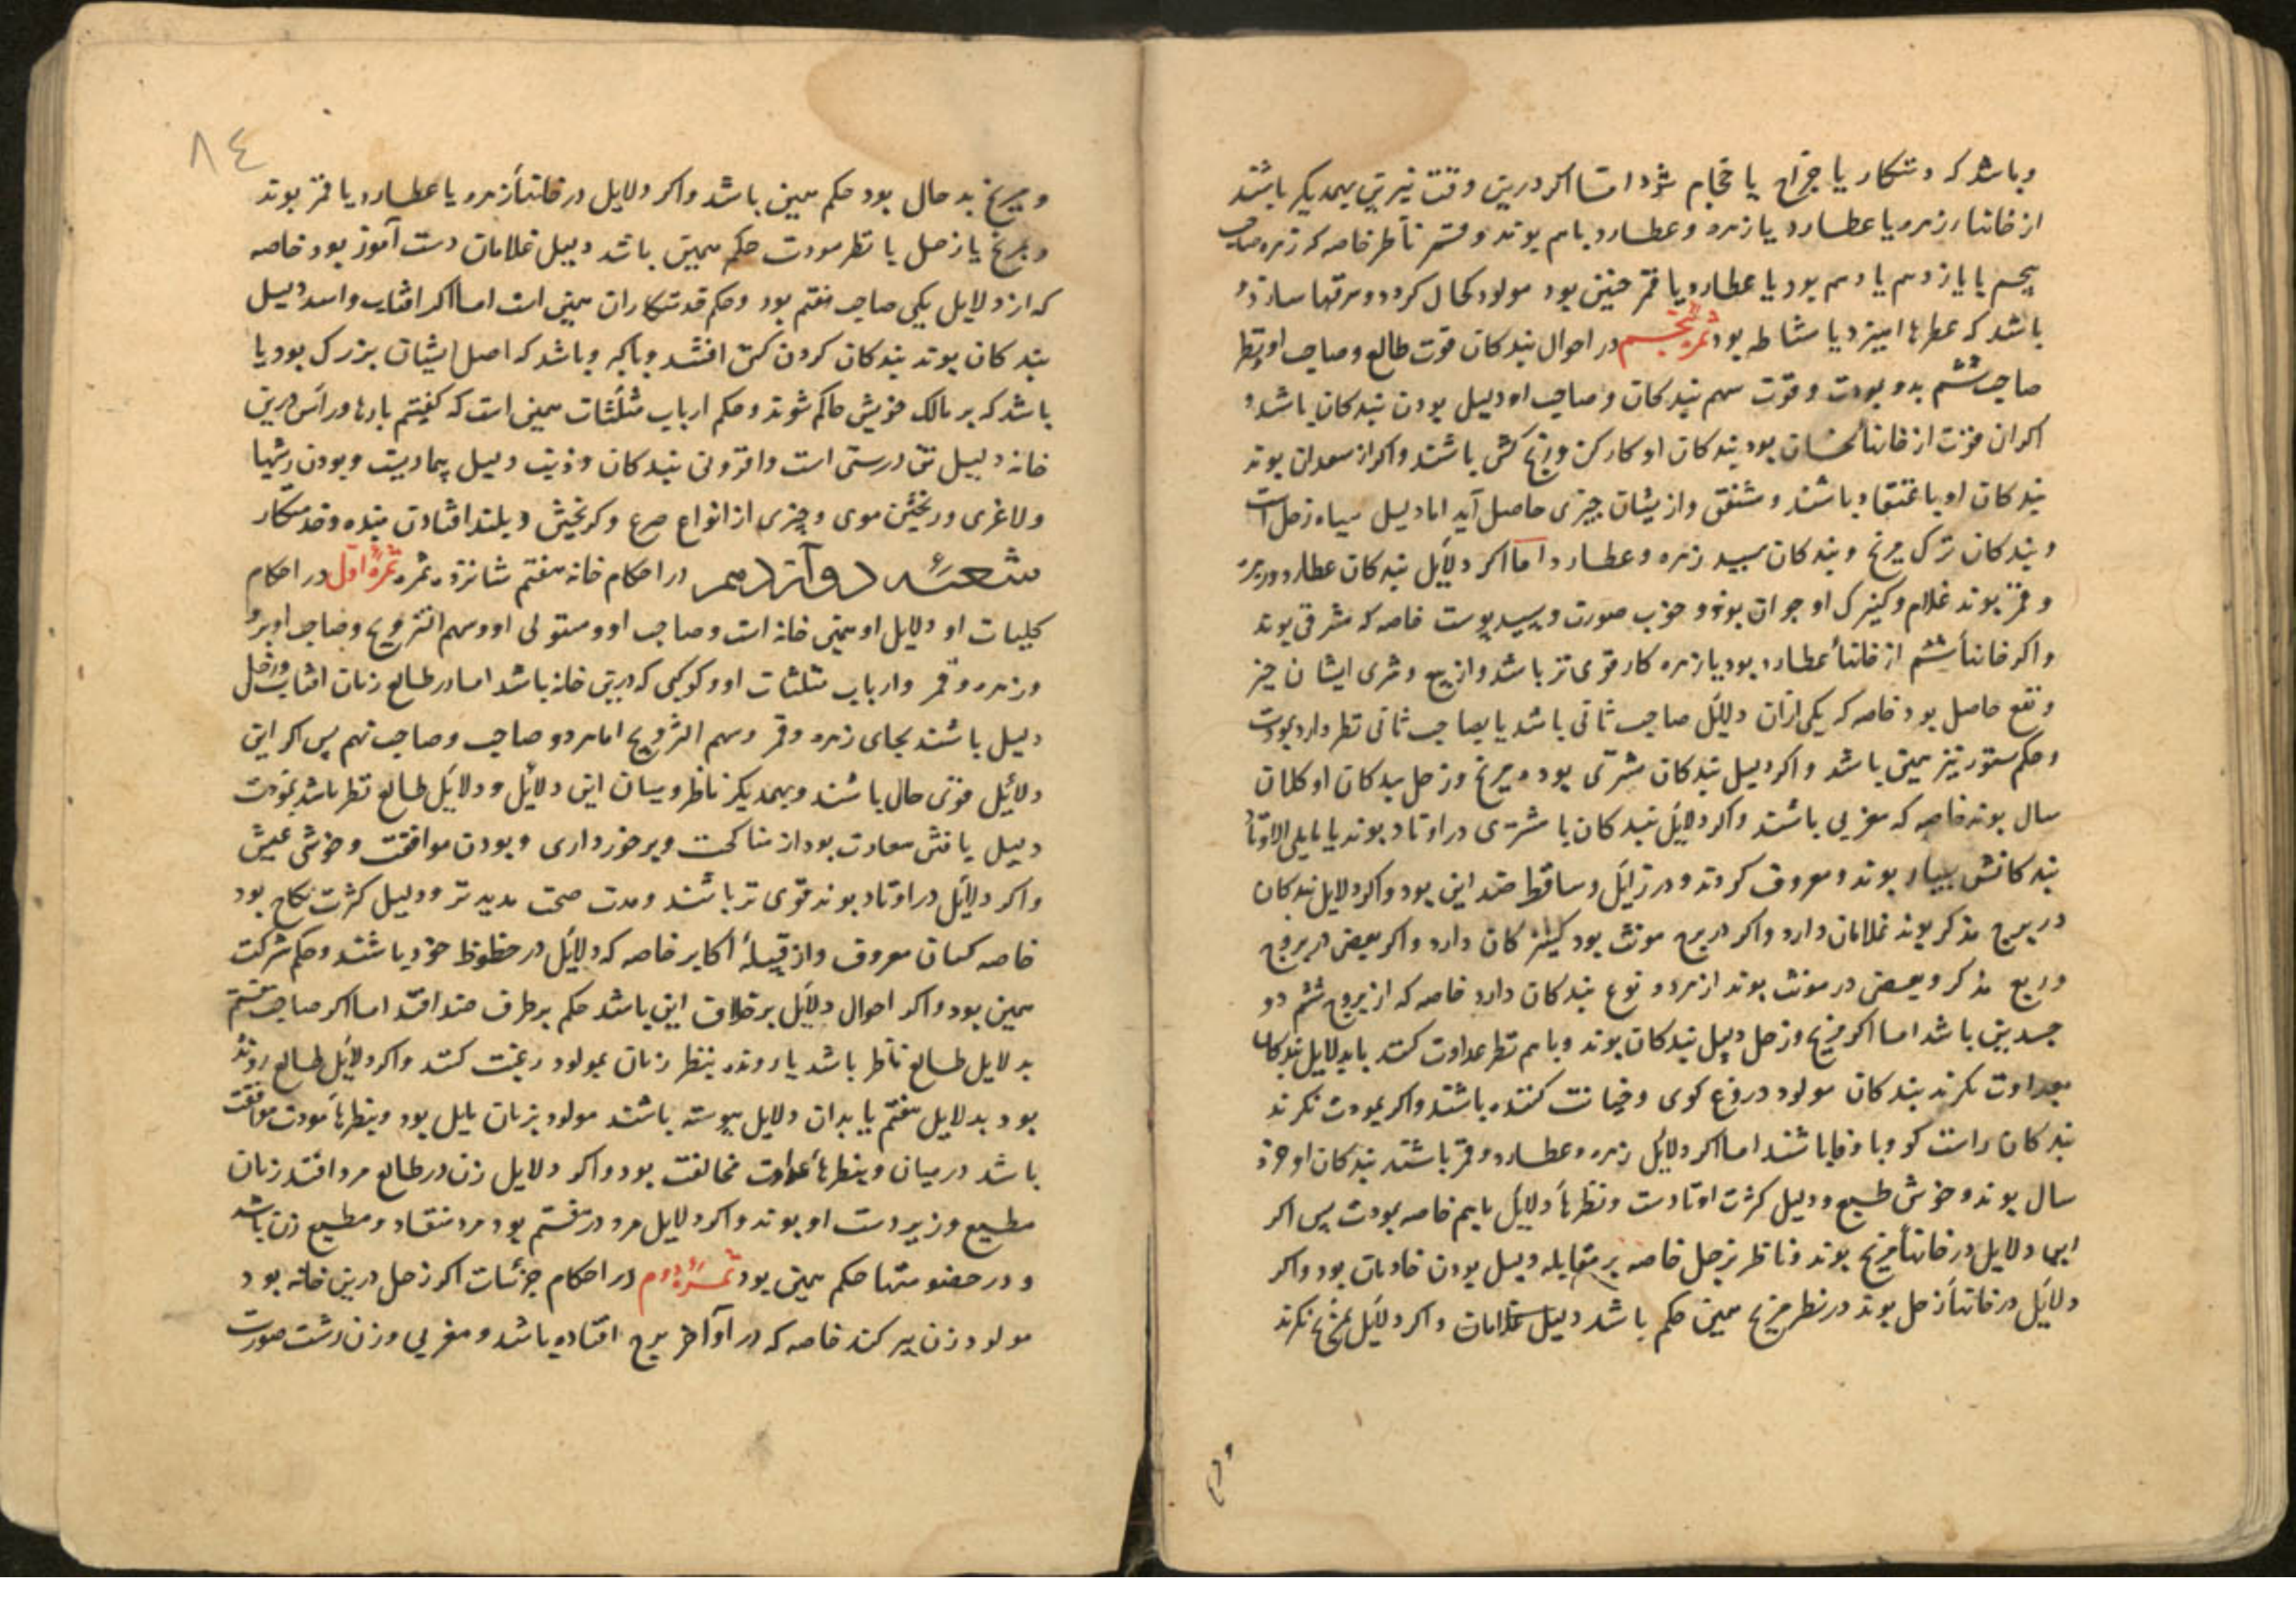 وباشد که دستکار یا جراح یا حجام شود اما اکر درین وقت نیرین بهمدیکر باشند
از خانها زهره یا عطارد یا زهره وعطارد باهم بوند وقمر ناظر خاصه که زهره صاحب
پنجم یا یازدهم یا دهم بود یا عطارد یا قمر چنین بود مولود کحال کردد و مرهمها سازد و
باشد که عطرها امیزد یا مشاطه بود ثمره پنجم در احوال بندکان قوت طالع وصاحب او ونظر
صاحب ششم بدو بمودت وقوت سهم بندکان وصاحب او دلیل بودن بندکان باشد و
اکر ان قوت از خانهأ نحسان بود بندکان او کارکن ورنج کش باشند واکر از سعدان بوند
بندکان او با عتقاد باشند ومشفق وازیشان چیزی حاصل آید اما دلیل سیاه زحل است
وبندکان ترک مریخ وبندکان سپید زهره وعطارد اما اکر دلایل بندکان عطارد وزهره
وقمر بوند غلام وکنیزک او جوان بود و خوب صورت وسپید پوست خاصه که مشرقی بوند
واکر خانهأ ششم از خانهأ عطارد بود یا زهره کار قوی تر باشد واز بیع وشری ایشان چیز
ونفع حاصل بود خاصه که یکی ازان دلایل صاحب ثانی باشد یا بصاحب ثانی نظر دارد بمودت
وحکم ستور نیز همین باشد واکر دلیل بندکان مشتری بود و مریخ وزحل بندکان او کلان
سال بوند خاصه که مغربی باشند واکر دلایل بندکان با مشتری در اوتاد بوند یا مایلی الاوتاد
بندکانش بسیار بوند ومعروف کردند ودر زایل وساقط ضد این بود واکر دلایل بندکان
در برج مذکر بوند غلامان دارد واکر در برج مونث بود کنیزکان دارد واکر بعضی در بروج
وربع مذکر وبعضی در مونث بوند از هر دو نوع بندکان دارد خاصه که از بروج ششم ذو
جسدین باشد اما اکر مریخ وزحل دلیل بندکان بوند وباهم نظر عداوت کنند یا بدلایل بندکان
بعداوت نکرند بندکان مولود دروغ کوی وخیانت کننده باشند واکر بمودت نکرند
بندکان راست کو وبا وفا باشند اما اکر دلایل زهره وعطارد وقمر باشند بندکان او خرد
سال بوند وخوش طبع ودلیل کثرت اوتادست ونظرهأ دلایل باهم خاصه بمودت پس اکر
این دلایل در خانهأ مریخ بوند وناظر بزحل خاصه بر مقابله دلیل بودن خادمان بود واکر
دلایل در خانهأ زحل بوند در نظر مریخ همین حکم باشد دلیل غلامان واکر دلایل بمریخ نکرند
ومریخ بد حال بود حکم همین باشد واکر دلایل در خانهأ زهره یا عطارد یا قمر بوند
ومریخ یا زحل یا نظر مودت حکم همین باشد دلیل غلامان دست آموز بود خاصه
که از دلایل یکی صاحب هفتم بود وحکم خدمتکاران همین است اما اکر افتاب واسد دلیل
بندکان بوند بندکان کردن کش افتند وباشد که اصل ایشان بزرک بود یا
باشد که بر مالک خویش حاکم شوند وحکم ارباب مثلثات همین است که کفیتم بارها وراس درین
خانه دلیل تن درستی است وافزونی بندکان وذنب دلیل بیماریست وبودن رشتها
ولاغری وریختن موی وچیزی از انواع صرع وکریختن وبلند افتادن بنده وخدمتکار
شعبه دوازدهم در احکام خانه هفتم شانزده ثمره ثمرۀ اول در احکام
کلیات او دلایل او همین خانه است وصاحب او ومستولی او وسهم التزویج وصاحب او بر
وزهره وقمر وارباب مثلثات او وکوکبی که درین خانه باشد اما در طالع زنان افتاب وزحل
دلیل باشند بجای زهره وقمر وسهم التزویج اما هر دو صاحب وصاحب نهم پس اکر این
دلایل قوی حال باشند وبهمدیکر ناظر ومیان این دلایل ودلایل طالع نظر باشد بمودت
دلیل یافتن سعادت بود از مناکحت وبرخورداری وبودن موافقت وخوشی عیش
واکر دلایل در اوتاد بوند قوی تر باشند ومدت صحبت مدید تر ودلیل کثرت نکاح بود
خاصه کسان معروف واز قبیلۀ اکابر خاصه که دلایل در حظوظ خود باشند وحکم شرکت
همین بود واکر احوال دلایل برخلاف این باشد حکم بر طرف ضد افتد اما اکر صاحب هفتم
بدلایل طالع ناظر باشد یا رونده بنظر زنان بمولود رغبت کنند واکر دلایل طالع رونده
بود بدلایل هفتم یا بدان دلایل پیوسته باشند مولود بزنان مایل بود وبنظرهأ مودت موافقت
باشد در میان وبنظرهأ عداوت مخالفت بود واکر دلایل زن در طالع مرد افتند زنان
مطیع وزیر دست او بوند واکر دلایل مرد در هفتم بود مرد منقاد ومطیع زن باشد
ودر حضومتها حکم همین بود ثمرۀ دوم در احکام جزئیات اکر زحل درین خانه بود
مولود زن پیر کند خاصه که در اواخر برج افتاده باشد ومغربی وزن زشت صورت
٨٤